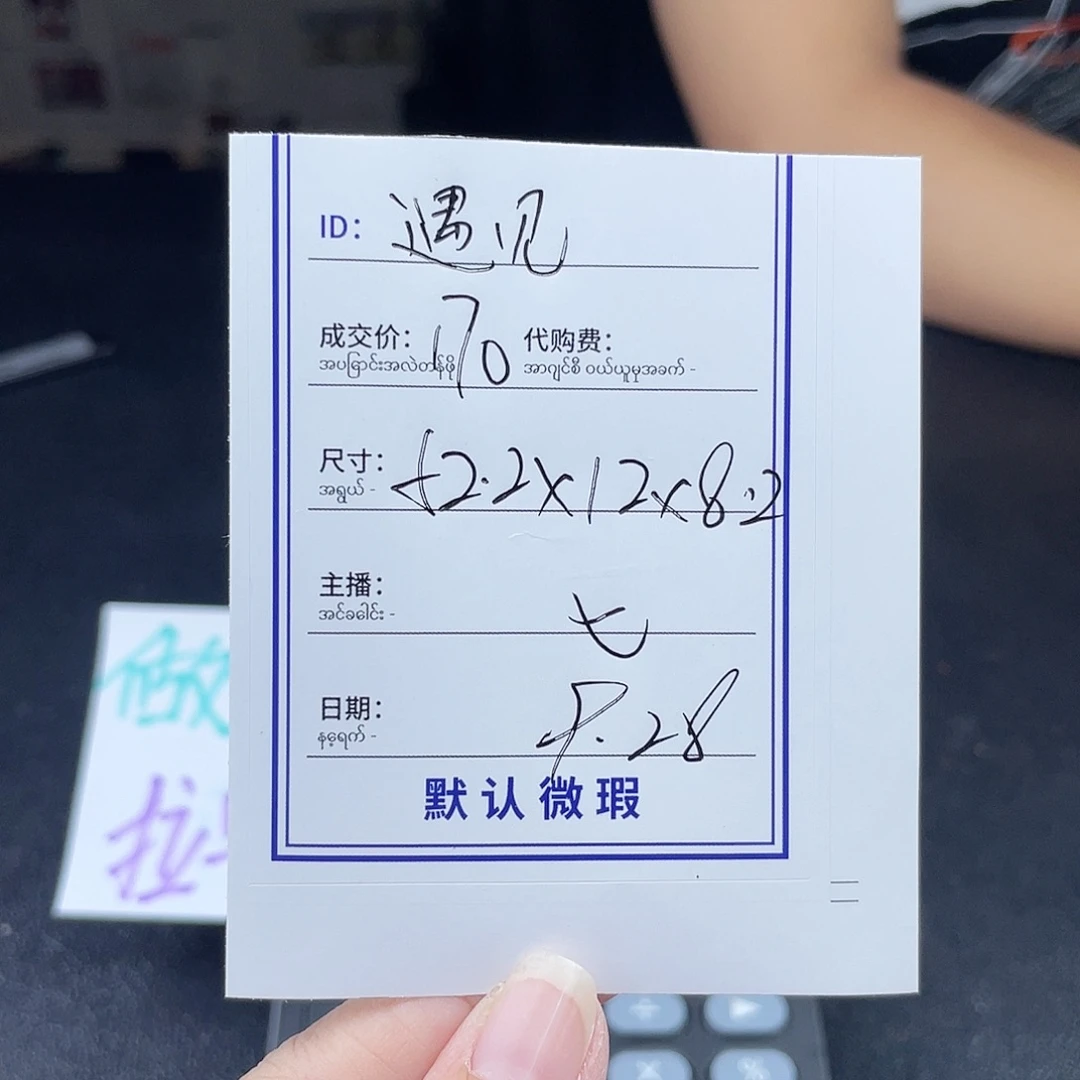 ID: 遇见
成交价: 170 代购费:
အပြောင်းအလဲတန်ဖိုး အာဂျင်စီ ဝယ်ယူမှုအခက် -
尺寸: 52.2x12x8.2
အရွယ် -
主播: 七
အင်ခခေါင်း -
日期: 9.28
နေ့ရက် -
默认微瑕
做
拉